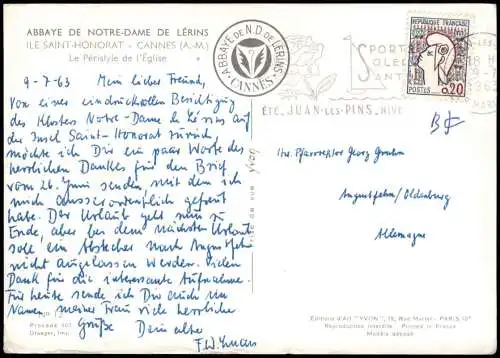 ABBAYE DE NOTRE-DAME DE LÉRINS
ILE SAINT-HONORAT - CANNES (A.-M.)
Le Péristyle de l'Église
ABBAYE DE N.D. DE LÉRINS
CANNES
SPORT
SOLEIL
SANTÉ
ÉTÉ. JUAN-LES-PINS. HIVER
RÉPUBLIQUE FRANÇAISE
POSTES 0,20
9-7-63 Mein lieber Freund,
Von einer eindrucksvollen Besichtigung
des Klosters Notre-Dame de Lérins auf
der Insel Saint-Honorat zurück,
möchte ich Dir ein paar Worte des
herzlichen Dankes für den Brief
vom 26. Juni senden, mit dem ich
mich ausserordentlich gefreut
habe. Der Urlaub geht nun zu
Ende, aber bei dem nächsten Urlaub
soll ein Abstecher nach Augustfehn
nicht ausgelassen werden. Vielen
Dank für die interessante Aufnahme.
Für heute sende ich Dir auch im
Namen meiner Frau viele herzliche
Grüße Dein alter
YVON
Herrn Pfarrrektor Georg
Augustfehn/Oldenburg
Allemagne
Procédé
Draeger, Imp.
Editions d'Art "YVON", 15, Rue Martel - PARIS-10e
Reproduction interdite - Printed in France
Modèle déposé